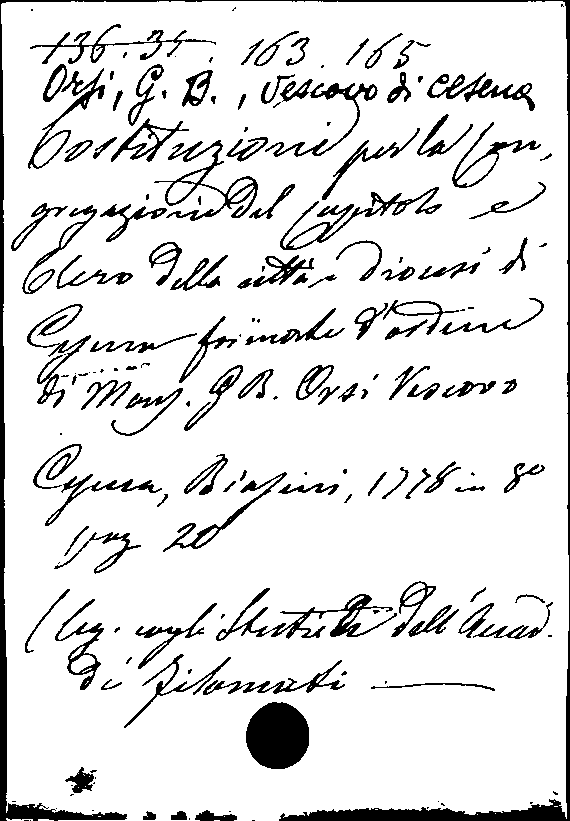 136.34. 163. 165
Orsi, G. B., Vescovo di Cesena
Costituzioni per la Con,
gregazione del Capitolo e
Clero della città e Diocesi di
Cesena formate d'ordine
di Mons. G B. Orsi Vescovo
Cesena, Biasini, 1778 in 8º
pag 20
(leg. cogli Statuti dell'Accad.
di Filomati